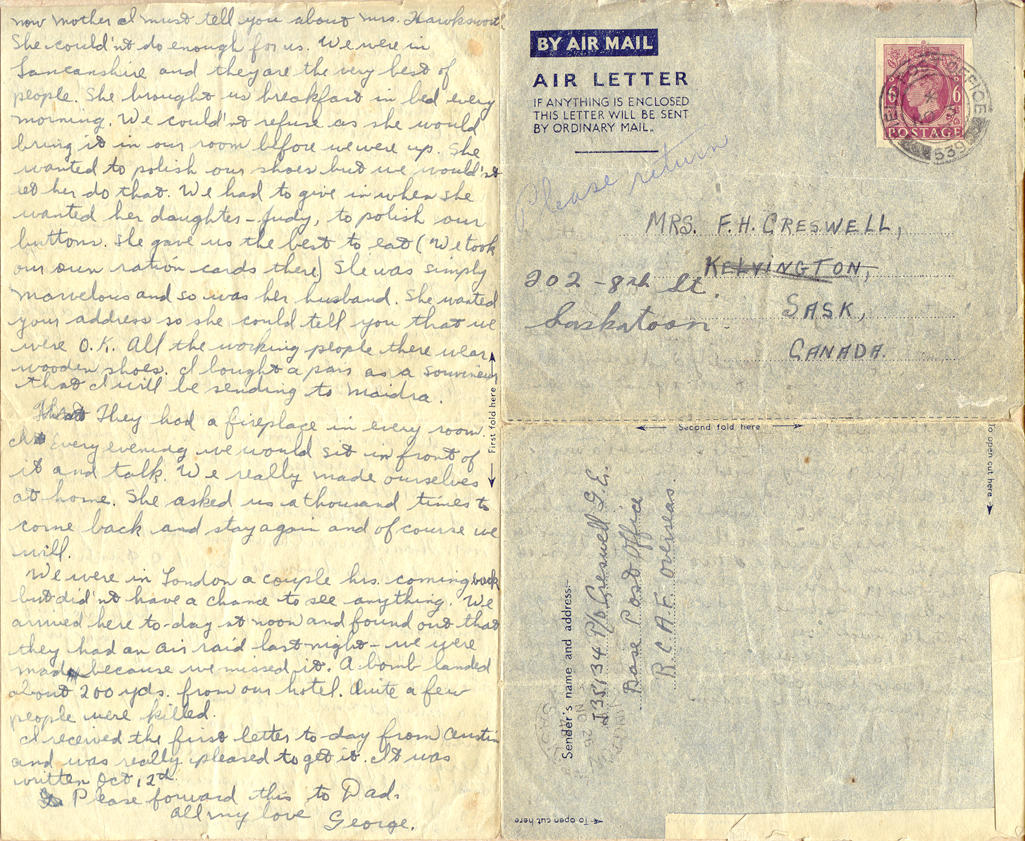 now mother I must tell you about Mrs. Hawkswort
She could'nt do enough for us. We were in
Lancanshire and they are the very best of
people. She brought us breakfast in bed every
morning. We could'nt refuse as she would
bring it in our room before we were up. She
wanted to polish our shoes but we would'nt
let her do that. We had to give in when she
wanted her daughter - Judy, to polish our
buttons. She gave us the best to eat (We took
our own ration cards there) She was simply
marvelous and so was her husband. She wanted
your address so she could tell you that we
were O.K. All the working people there wear
wooden shoes. I bought a pair as a souvenir
that I will be sending to Maidra.
They had a fireplace in every room
every evening we would sit in front of
it and talk. We really made ourselves
at home. She asked us a thousand times to
come back and stay again and of course we
will.
We were in London a couple hrs. coming back
but did'nt have a chance to see anything. We
arrived here to-day at noon and found out that
they had an air raid last night - we were
mad because we missed it. A bomb landed
about 200 yds. from our hotel. Quite a few
people were killed.
I received the first letter to-day from Austin
and was really pleased to get it. It was
written Oct 12th.
Please forward this to Dad.
All my love
George.
First fold here
BY AIR MAIL
AIR LETTER
IF ANYTHING IS ENCLOSED
THIS LETTER WILL BE SENT
BY ORDINARY MAIL.
6 6
POSTAGE
OFFICE
539
Please return
MRS. F.H. CRESWELL,
KELVINGTON,
202 - 8th St.
SASK,
Saskatoon.
CANADA.
Second fold here
To open cut here
Sender's name and address:-
J35134 P/O Creswell G.E.
Base Post Office
R.C.A.F. Overseas.
To open cut here